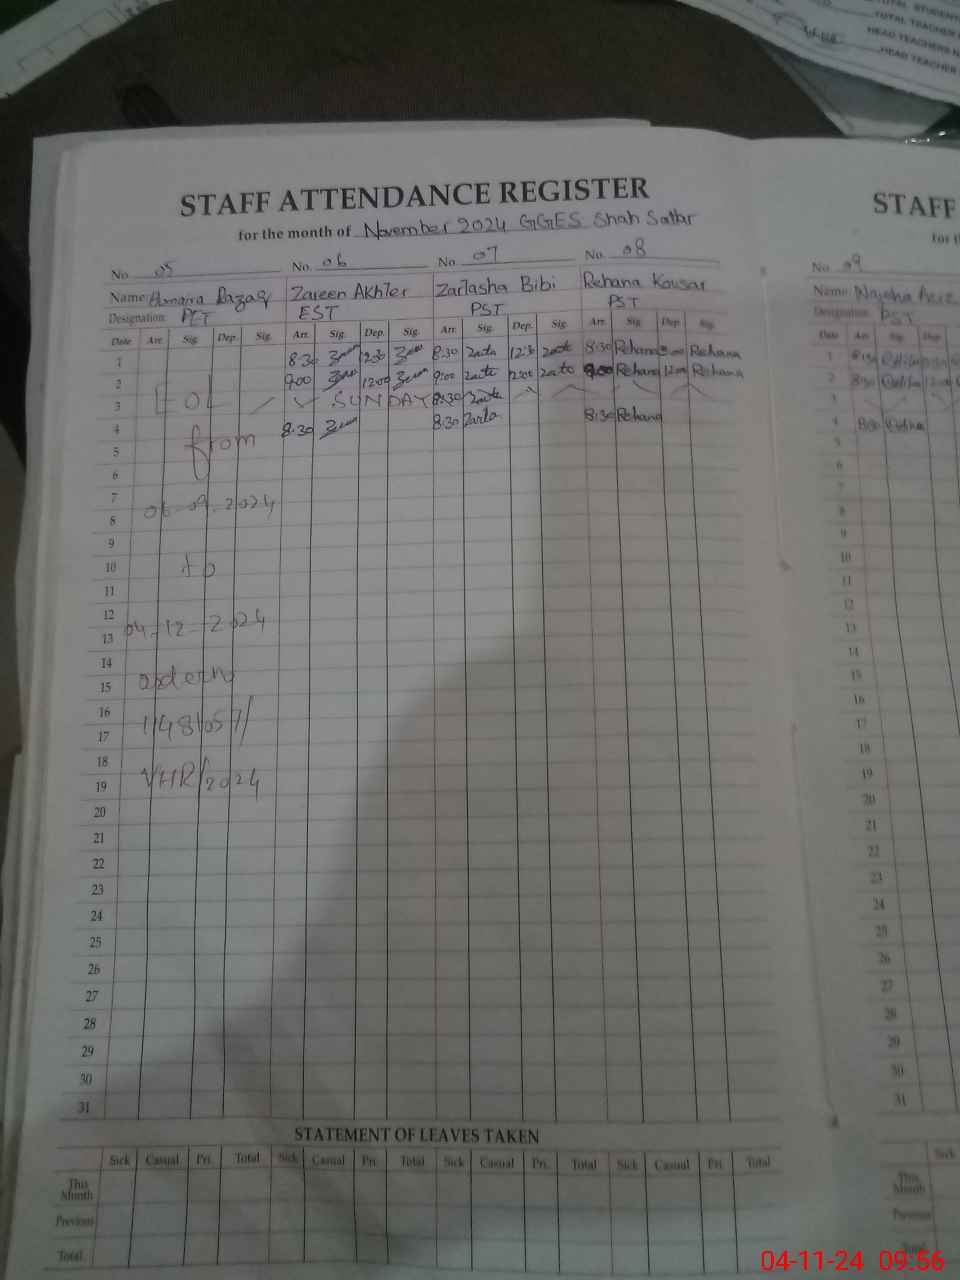 TOTAL STUDENT
TOTAL TEACHER
HEAD TEACHERS N
HEAD TEACHER
STAFF ATTENDANCE REGISTER
for the month of November 2024 GGES Shah Sattar
No. 05 No. 06 No. 07 No. 08
Name: Humaira Razaq Zareen Akhter Zarlasha Bibi Rehana Kousar
Designation: PET EST PST PST
Date Arr. Sig. Dep. Sig. Arr. Sig. Dep. Sig. Arr. Sig. Dep. Sig. Arr. Sig. Dep. Sig.
1 8:30 12:30 8:30 Zarla 12:30 8:30 Rehana Rehana
2 9:00 12:00 9:00 12:00 9:00 Rehana 12:00 Rehana
3 EOL SUNDAY 8:30
4 from 8:30 8:30 Zarla 8:30 Rehana
5
6
7
8 06-09-2024
9
10 to
11
12
13 04-12-2024
14
15 order no
16
17 1148/057/
18
19 VHR/2024
20
21
22
23
24
25
26
27
28
29
30
31
STATEMENT OF LEAVES TAKEN
Sick Casual Pri. Total Sick Casual Pri. Total Sick Casual Pri. Total Sick Casual Pri. Total
This Month
Previous
Total
STAFF
for th
No. 09
Name:
Designation: PST
Date Arr. Sig. Dep.
1
2 8:30
3
4 8:30
5
6
7
8
9
10
11
12
13
14
15
16
17
18
19
20
21
22
23
24
25
26
27
28
29
30
31
Sick
This Month
Previous
Total
04-11-24 09:56